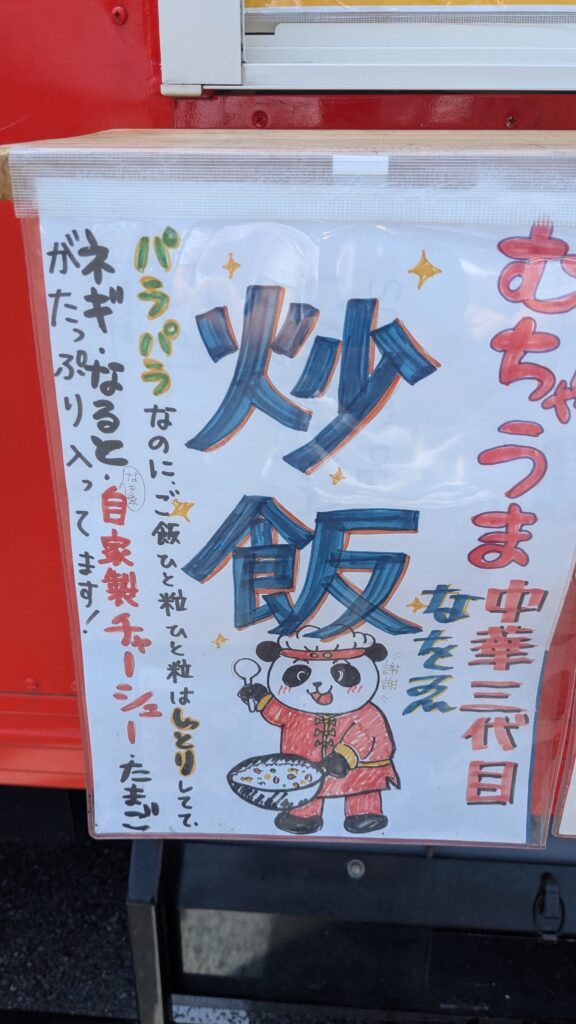 むちゃうま
中華三代目
なをゑ
炒飯
謝謝
パラパラなのに、ご飯ひと粒ひと粒はしっとりしてて、
ネギ・なると・自家製チャーシューたまご
なをゑ
がたっぷり入ってます!